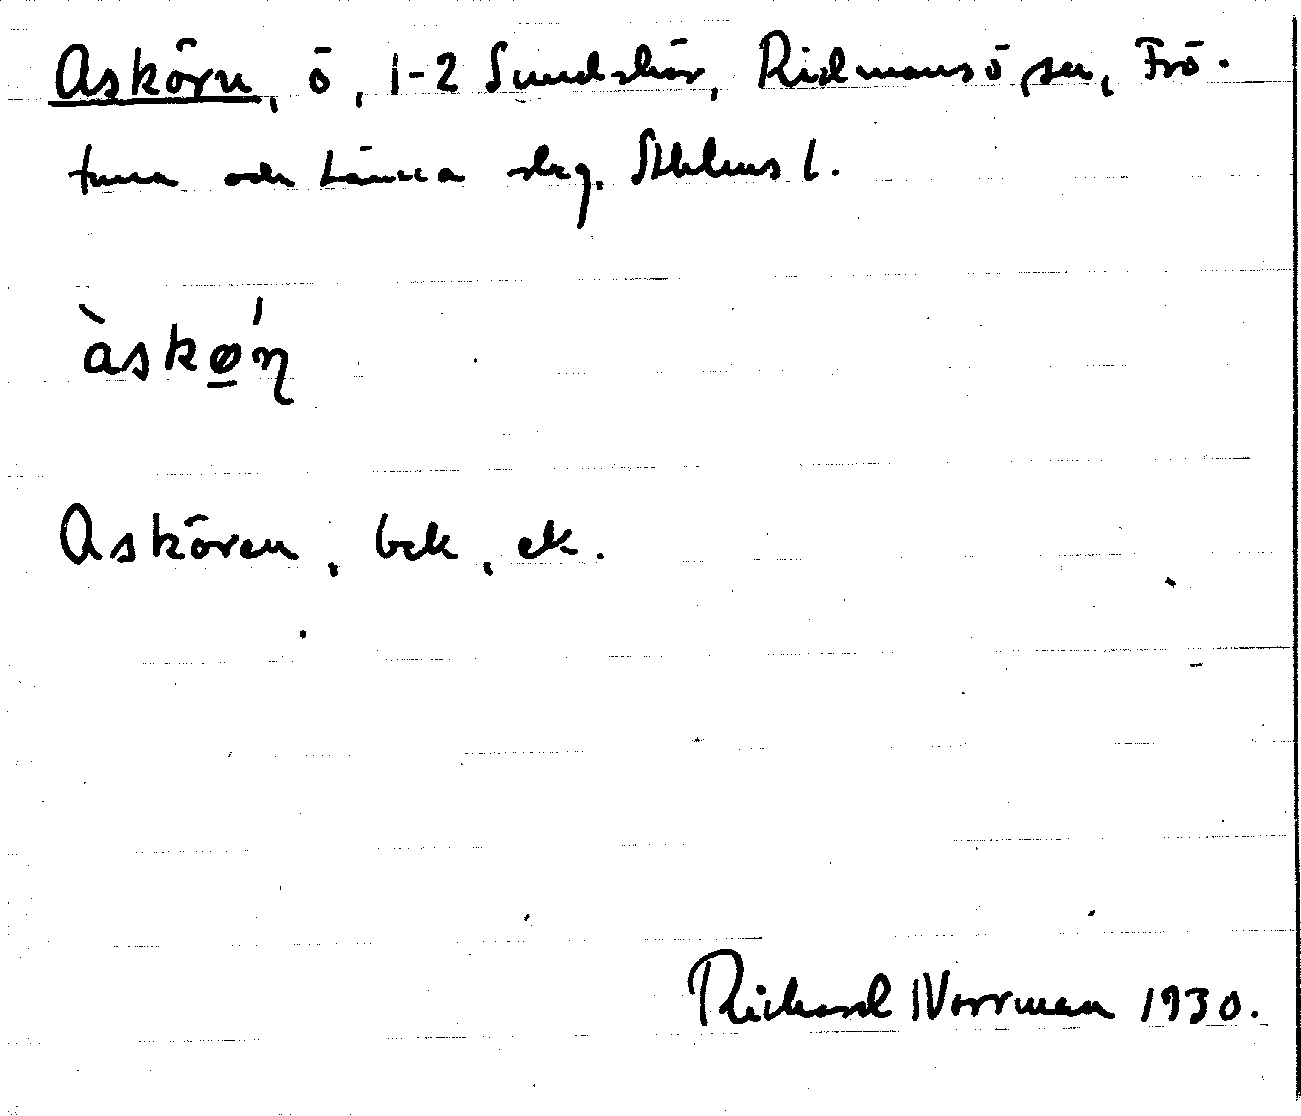 Askörn, ö, 1-2 Sundskär, Ridmansö sn, Frö-
tuna och Länna skg. Sthlms l.
àskǿ̱ɳ
Askören, bek, ek.
Richard Norrman 1930.